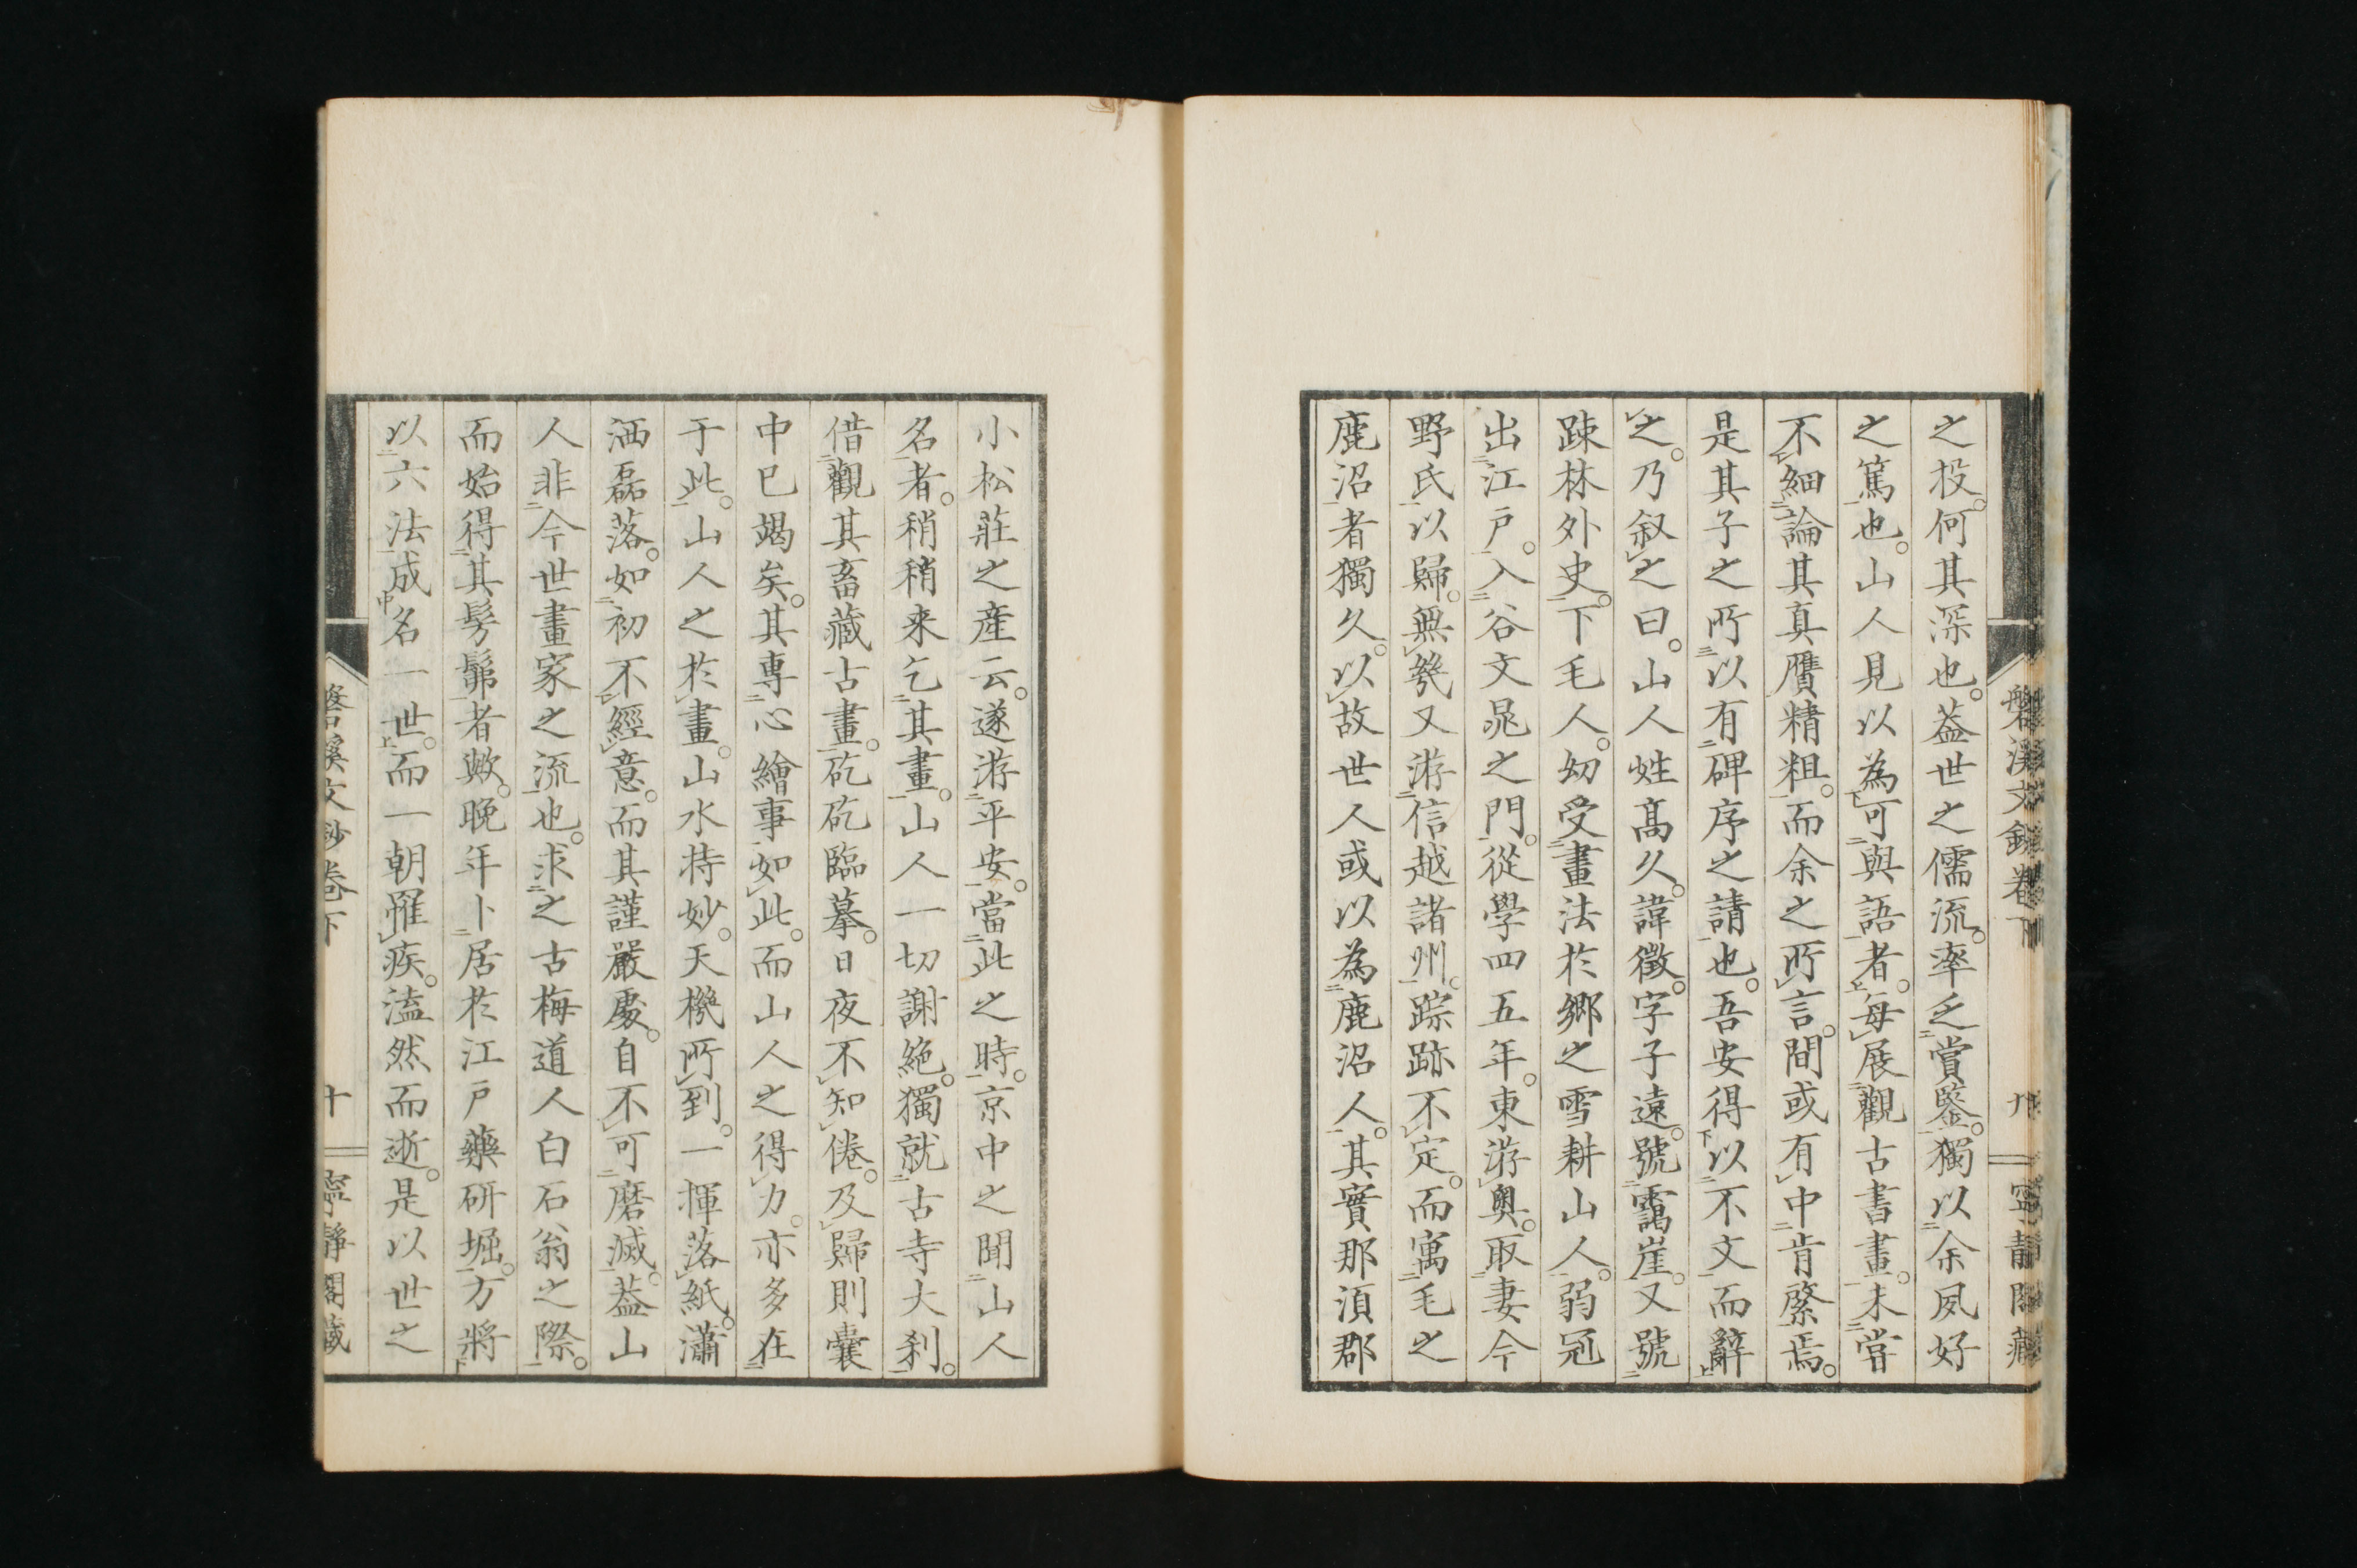 之投。何其深也。葢世之儒流。率乏賞鑒。獨以余夙好
之篤也。山人見以為可與語者。每展觀古書畫。未嘗
不細論其真贋精粗。而余之所言。間或有中肯綮焉。
是其子之所以有碑序之請也。吾安得以不文而辭
之。乃叙之曰。山人姓髙久。諱徵。字子遠。號靄崖。又號
踈林外史。下毛人。㓜受畫法於鄉之雪耕山人。弱冠
出江戸。入谷文晁之門。從學四五年。東游奥。取妻今
野氏以歸。無幾又游信越諸州。踪跡不定。而寓毛之
鹿沼者獨久。以故世人或以為鹿沼人。其實那湏郡
磐溪文鈔卷下 九 寧靜閣藏
小松莊之産云。遂游平安。當此之時。京中之聞山人
名者。稍稍来乞其畫。山人一切謝絶。獨就古寺大刹。
借觀其畜藏古畫。矻矻臨摹。日夜不知倦。及歸則囊
中已竭矣。其專心繪事如此。而山人之得力。亦多在
于此。山人之於畫。山水特妙。天機所到。一揮落紙。瀟
洒磊落。如初不經意。而其謹嚴處。自不可磨滅。葢山
人非今世畫家之流也。求之古梅道人白石翁之際。
而始得其髣髴者歟。晩年卜居於江戸藥研堀。方將
以六法成名一世。而一朝罹疾。溘然而逝。是以世之
磐溪文鈔卷下 十 寧靜閣藏